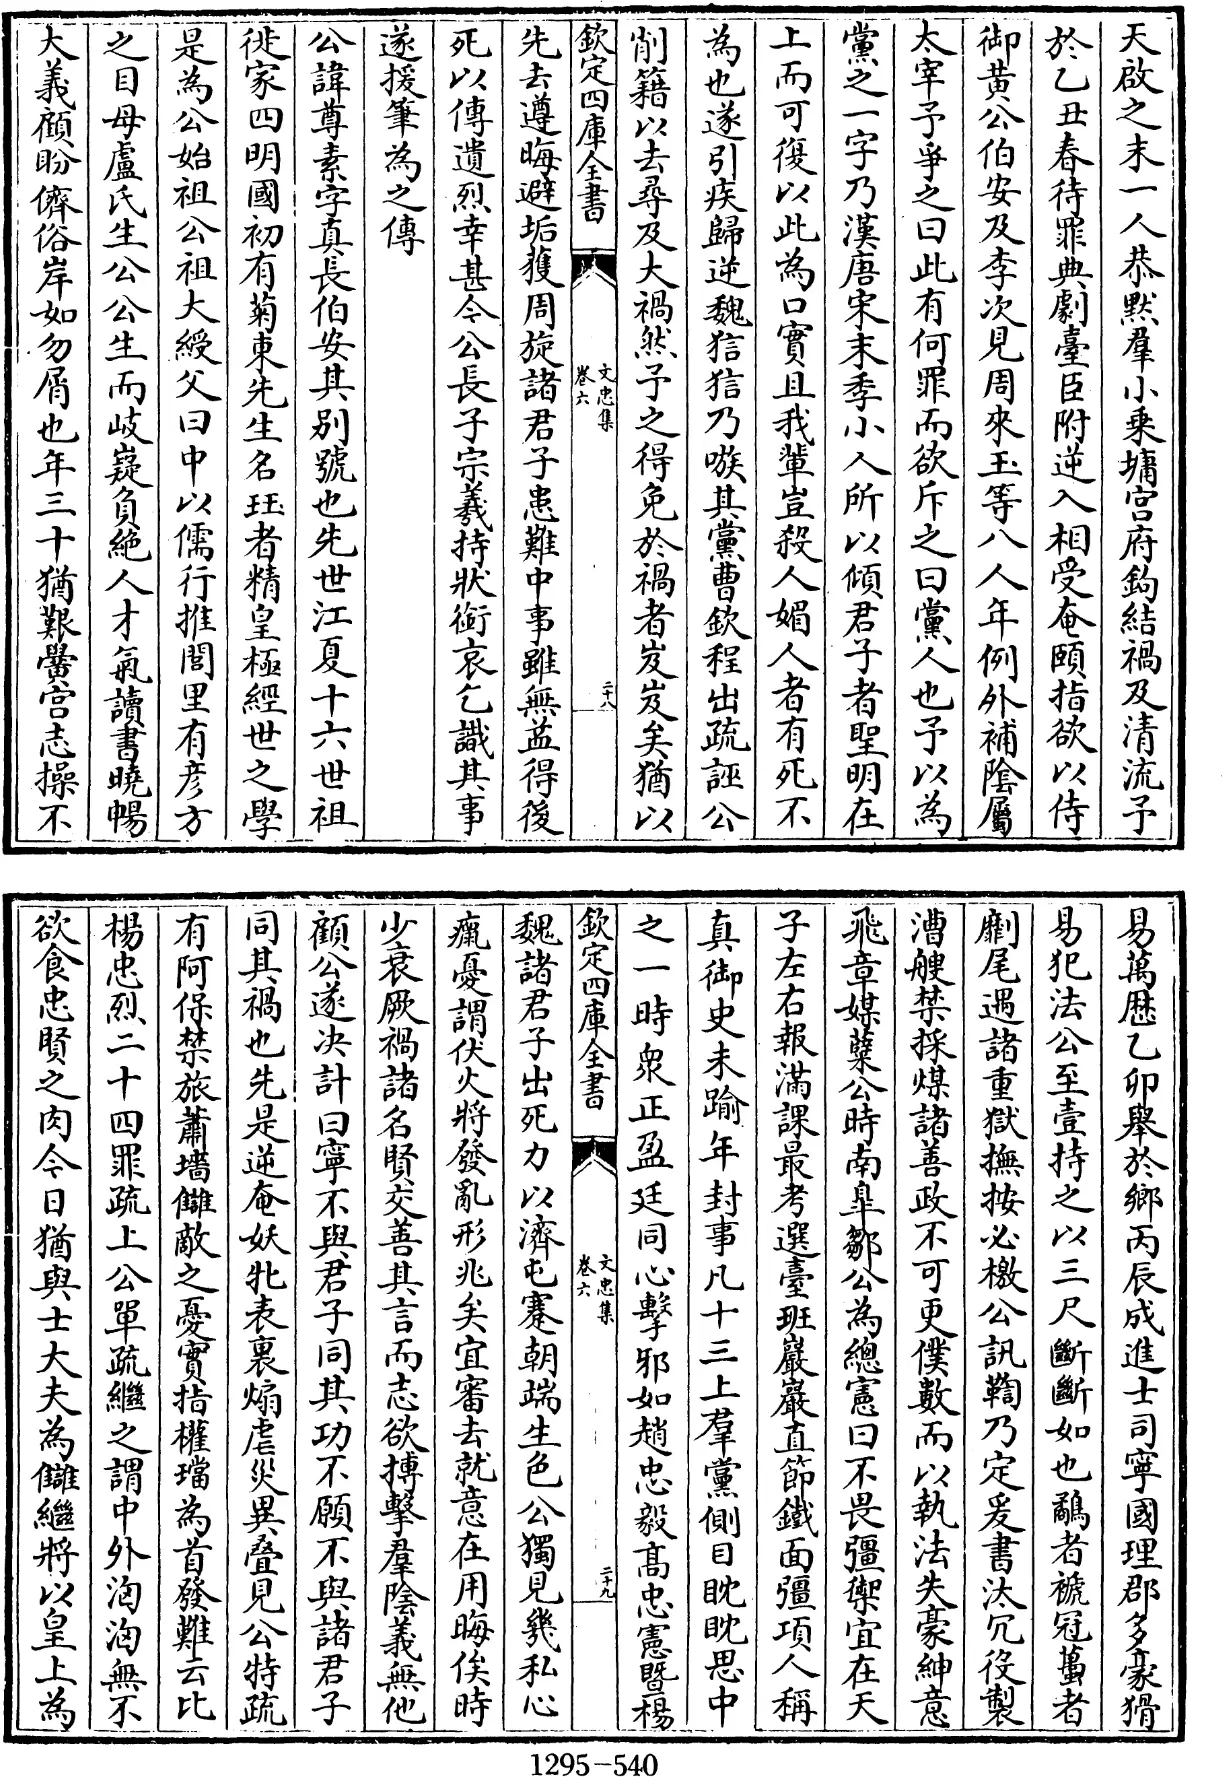 天啟之末一人恭默羣小乘墉宫府鈎結禍及清流予
於乙丑春待罪典劇臺臣附逆入相受奄頤指欲以侍
御黄公伯安及李次見周來玉等八人年例外補陰屬
太宰予爭之曰此有何罪而欲斥之曰黨人也予以為
黨之一字乃漢唐宋末季小人所以傾君子者聖明在
上而可復以此為口實且我輩豈殺人媚人者有死不
為也遂引疾歸逆魏狺狺乃嗾其黨曹欽程出疏誣公
削籍以去尋及大禍然予之得免於禍者岌岌矣猶以
欽定四庫全書
文忠集
卷六
二十八
先去遵晦避垢獲周旋諸君子患難中事雖無益得後
死以傳遺烈幸甚令公長子宗羲持狀銜哀乞識其事
遂援筆為之傳
公諱尊素字真長伯安其别號也先世江夏十六世祖
徙家四明國初有菊東先生名珏者精皇極經世之學
是為公始祖公祖大綬父曰中以儒行推閭里有彦方
之目母盧氏生公公生而岐嶷負絶人才氣讀書曉暢
大義顧盼儕俗岸如勿屑也年三十猶艱黌宫志操不
易萬歷乙卯舉於鄉丙辰成進士司寧國理郡多豪猾
易犯法公至壹持之以三尺斷斷如也鷸者褫冠蠆者
劘尾遇諸重獄撫按必檄公訊鞫乃定爰書汰冗役製
漕艘禁採煤諸善政不可更僕數而以執法失豪紳意
飛章媒蘖公時南臯鄒公為總憲曰不畏彊禦宜在天
子左右報滿課最考選臺班巖巖直節鐵面彊項人稱
真御史未踰年封事凡十三上羣黨側目眈眈思中
之一時衆正盈廷同心擊邪如趙忠毅高忠憲暨楊
欽定四庫全書
文忠集
卷六
二十九
魏諸君子出死力以濟屯蹇朝端生色公獨見幾私心
瘋憂謂伏火將發亂形兆矣宜審去就意在用晦俟時
少衰厥禍諸名賢交善其言而志欲搏擊羣陰義無他
顧公遂决計曰寧不與君子同其功不願不與諸君子
同其禍也先是逆奄妖牝表裏煽虐災異叠見公特疏
有阿保禁旅蕭墻讎敵之憂實指權璫為首發難云比
楊忠烈二十四罪疏上公單疏繼之謂中外洶洶無不
欲食忠賢之肉今日猶與士大夫為讎繼將以皇上為
1295-540